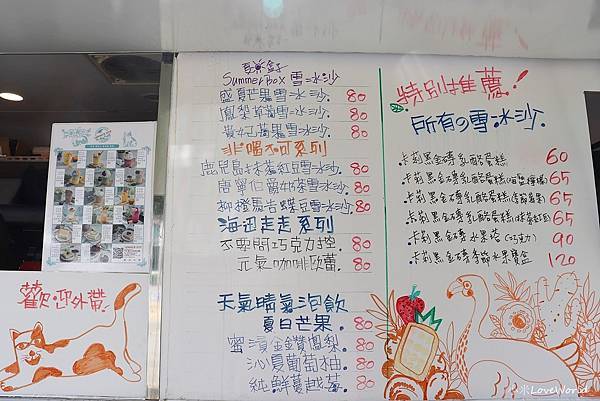 夏日盒子
Summer Box 雪冰沙
盛夏芒果雪冰沙 80
鳳梨草莓雪冰沙 80
黃仁蘋果雪冰沙 80
非喝不可系列
鹿兒島抹茶紅豆雪冰沙 80
唐寧伯爵奶茶雪冰沙 80
柳橙馬告蝶豆雪冰沙 80
海廻走走系列
不要開巧克力控 80
元氣咖啡歐蕾 80
天氣晴氣泡飲
夏日芒果 80
蜜漬金鑽鳳梨 80
沁夏葡萄柚 80
純鮮蔓越莓 80
特別推薦！
所有の雪冰沙
卡莉黑金磚乳酪蛋糕 60
卡莉黑金磚乳酪蛋糕 65
卡莉黑金磚乳酪蛋糕 65
卡莉黑金磚乳酪蛋糕 65
卡莉黑金磚水果塔(巧克力) 90
卡莉黑金磚季節水果寶盒 120
歡迎外帶
小米LoveWorld